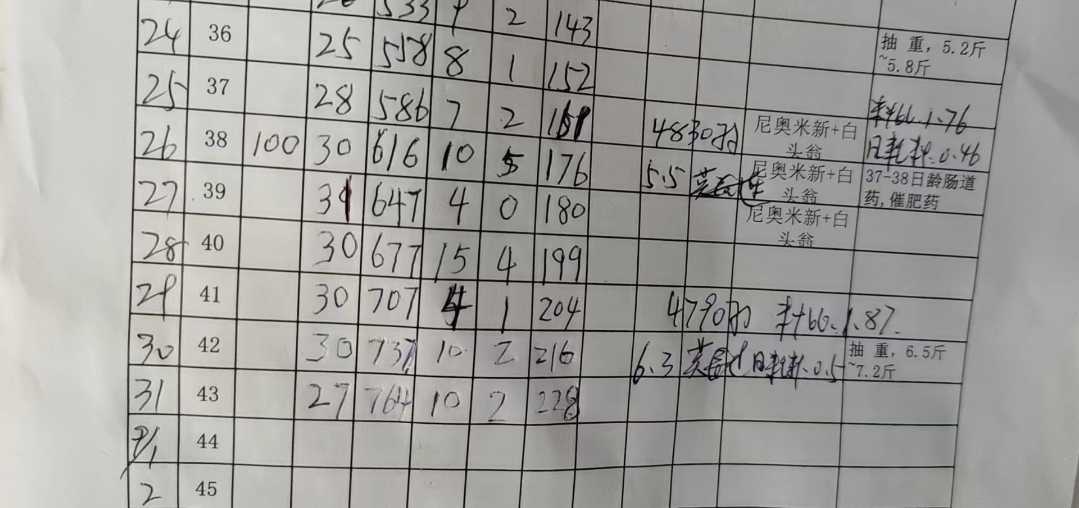 533 2 143
24 36 25 558 8 1 152 抽 重，5.2斤
~5.8斤
25 37 28 586 7 2 161 料66 1.76
26 38 100 30 616 10 5 176 4830 尼奥米新+白
头翁 日耗料 0.46
27 39 31 647 4 0 180 5.5 尼奥米新+白
头翁 37-38日龄肠道
药，催肥药
尼奥米新+白
头翁
28 40 30 677 15 4 199
29 41 30 707 4 1 204 4790 料66 1.87
30 42 30 737 10 2 216 6.3 日耗料 0.5 抽 重，6.5斤
~7.2斤
31 43 27 764 10 2 228
44
2 45